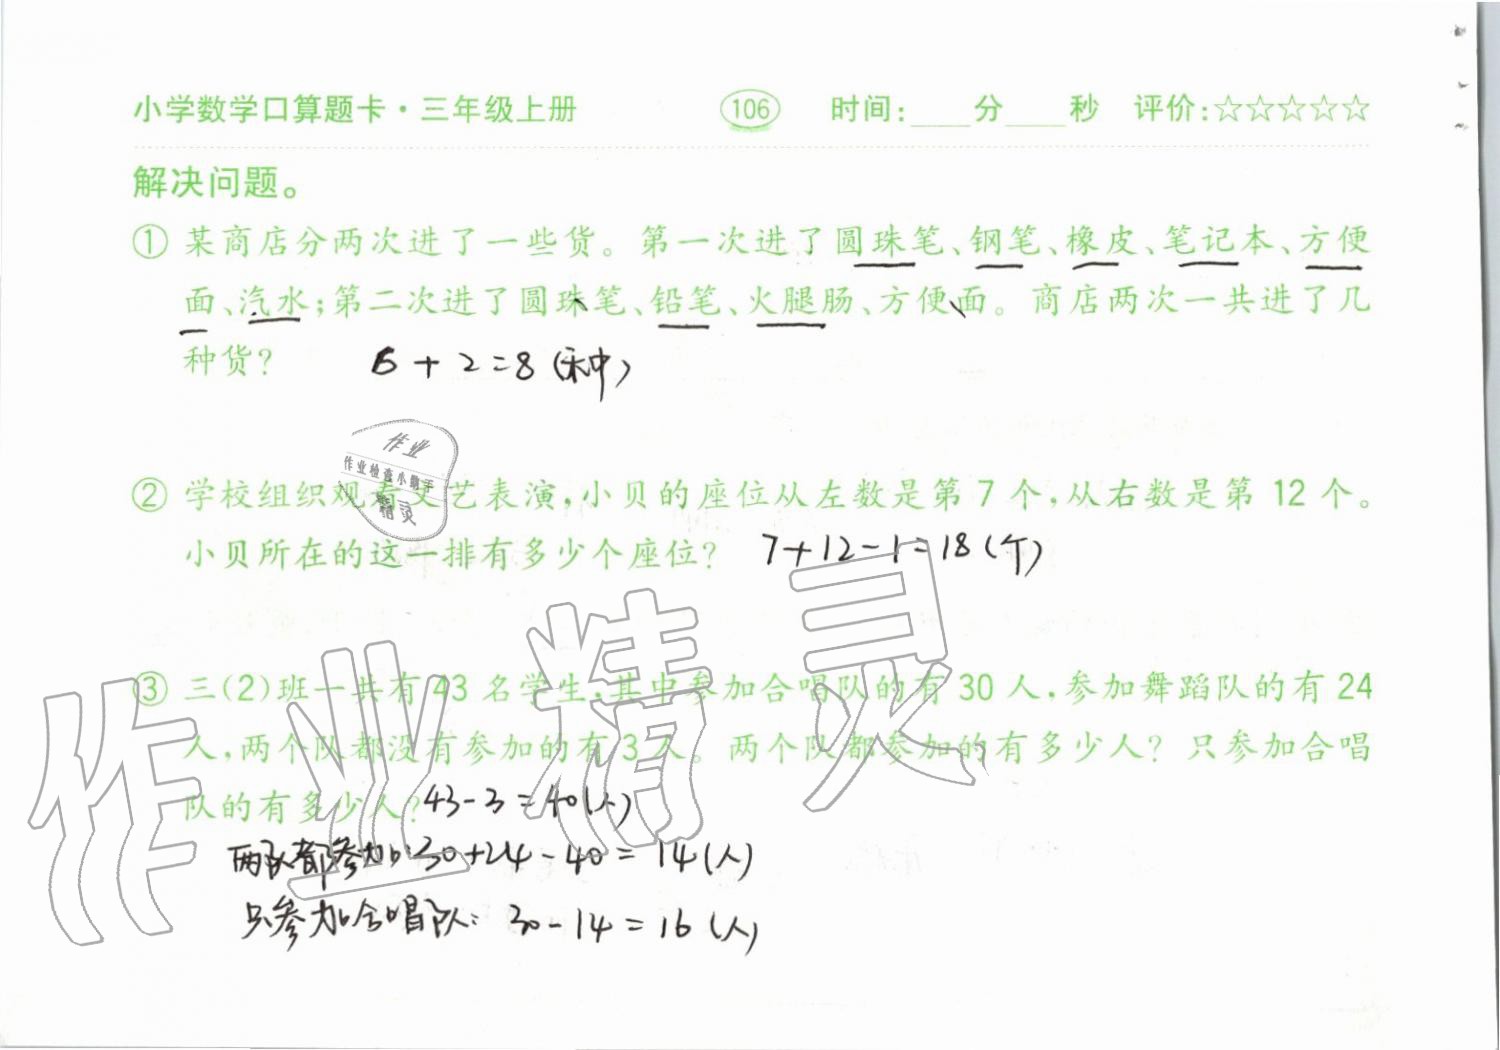 小学数学口算题卡·三年级上册 106 时间:____分____秒 评价:☆☆☆☆☆
解决问题。
① 某商店分两次进了一些货。第一次进了圆珠笔、钢笔、橡皮、笔记本、方便
面、汽水;第二次进了圆珠笔、铅笔、火腿肠、方便面。商店两次一共进了几
种货?
6+2=8(种)
作业
作业检查小助手
精灵
② 学校组织观看文艺表演,小贝的座位从左数是第7个,从右数是第12个。
小贝所在的这一排有多少个座位?
7+12-1=18(个)
③ 三(2)班一共有43名学生,其中参加合唱队的有30人,参加舞蹈队的有24
人,两个队都没有参加的有3人。两个队都参加的有多少人?只参加合唱
队的有多少人?
43-3=40(人)
两队都参加:30+24-40=14(人)
只参加合唱队:30-14=16(人)
作业精灵